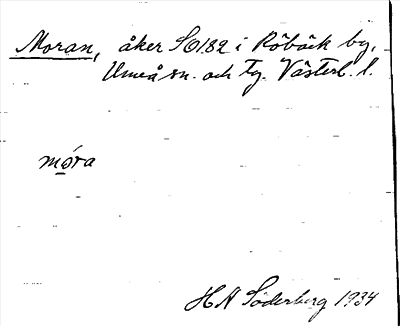 Moran, åker S6182 i Röbäck by,
Umeå sn. och tg. Västerb. l.
móra
HA Söderberg 1934